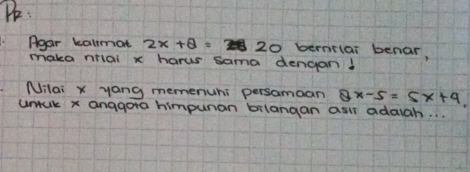 PR:
Agar kalimat 2x + 8 = 20 bernilai benar,
maka nilai x harus sama dengan!
Nilai x yang memenuhi persamaan 8x - 5 = 5x + 9,
untuk x anggota himpunan bilangan asli adalah...